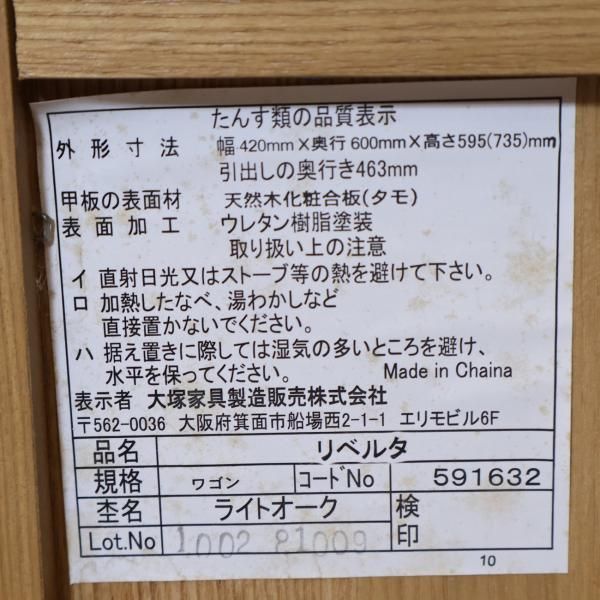 たんす類の品質表示
外形寸法 幅420mm×奥行600mm×高さ595(735)mm
引出しの奥行き463mm
甲板の表面材 天然木化粧合板(タモ)
表面加工 ウレタン樹脂塗装
取り扱い上の注意
イ 直射日光又はストーブ等の熱を避けて下さい。
ロ 加熱したなべ、湯わかしなど
直接置かないでください。
ハ 据え置きに際しては湿気の多いところを避け、
水平を保ってください。 Made in Chaina
表示者 大塚家具製造販売株式会社
〒562-0036 大阪府箕面市船場西2-1-1 エリモビル6F
品名 リベルタ
規格 ワゴン コードNo 591632
杢名 ライトオーク 検印
Lot.No 1002 81009
10